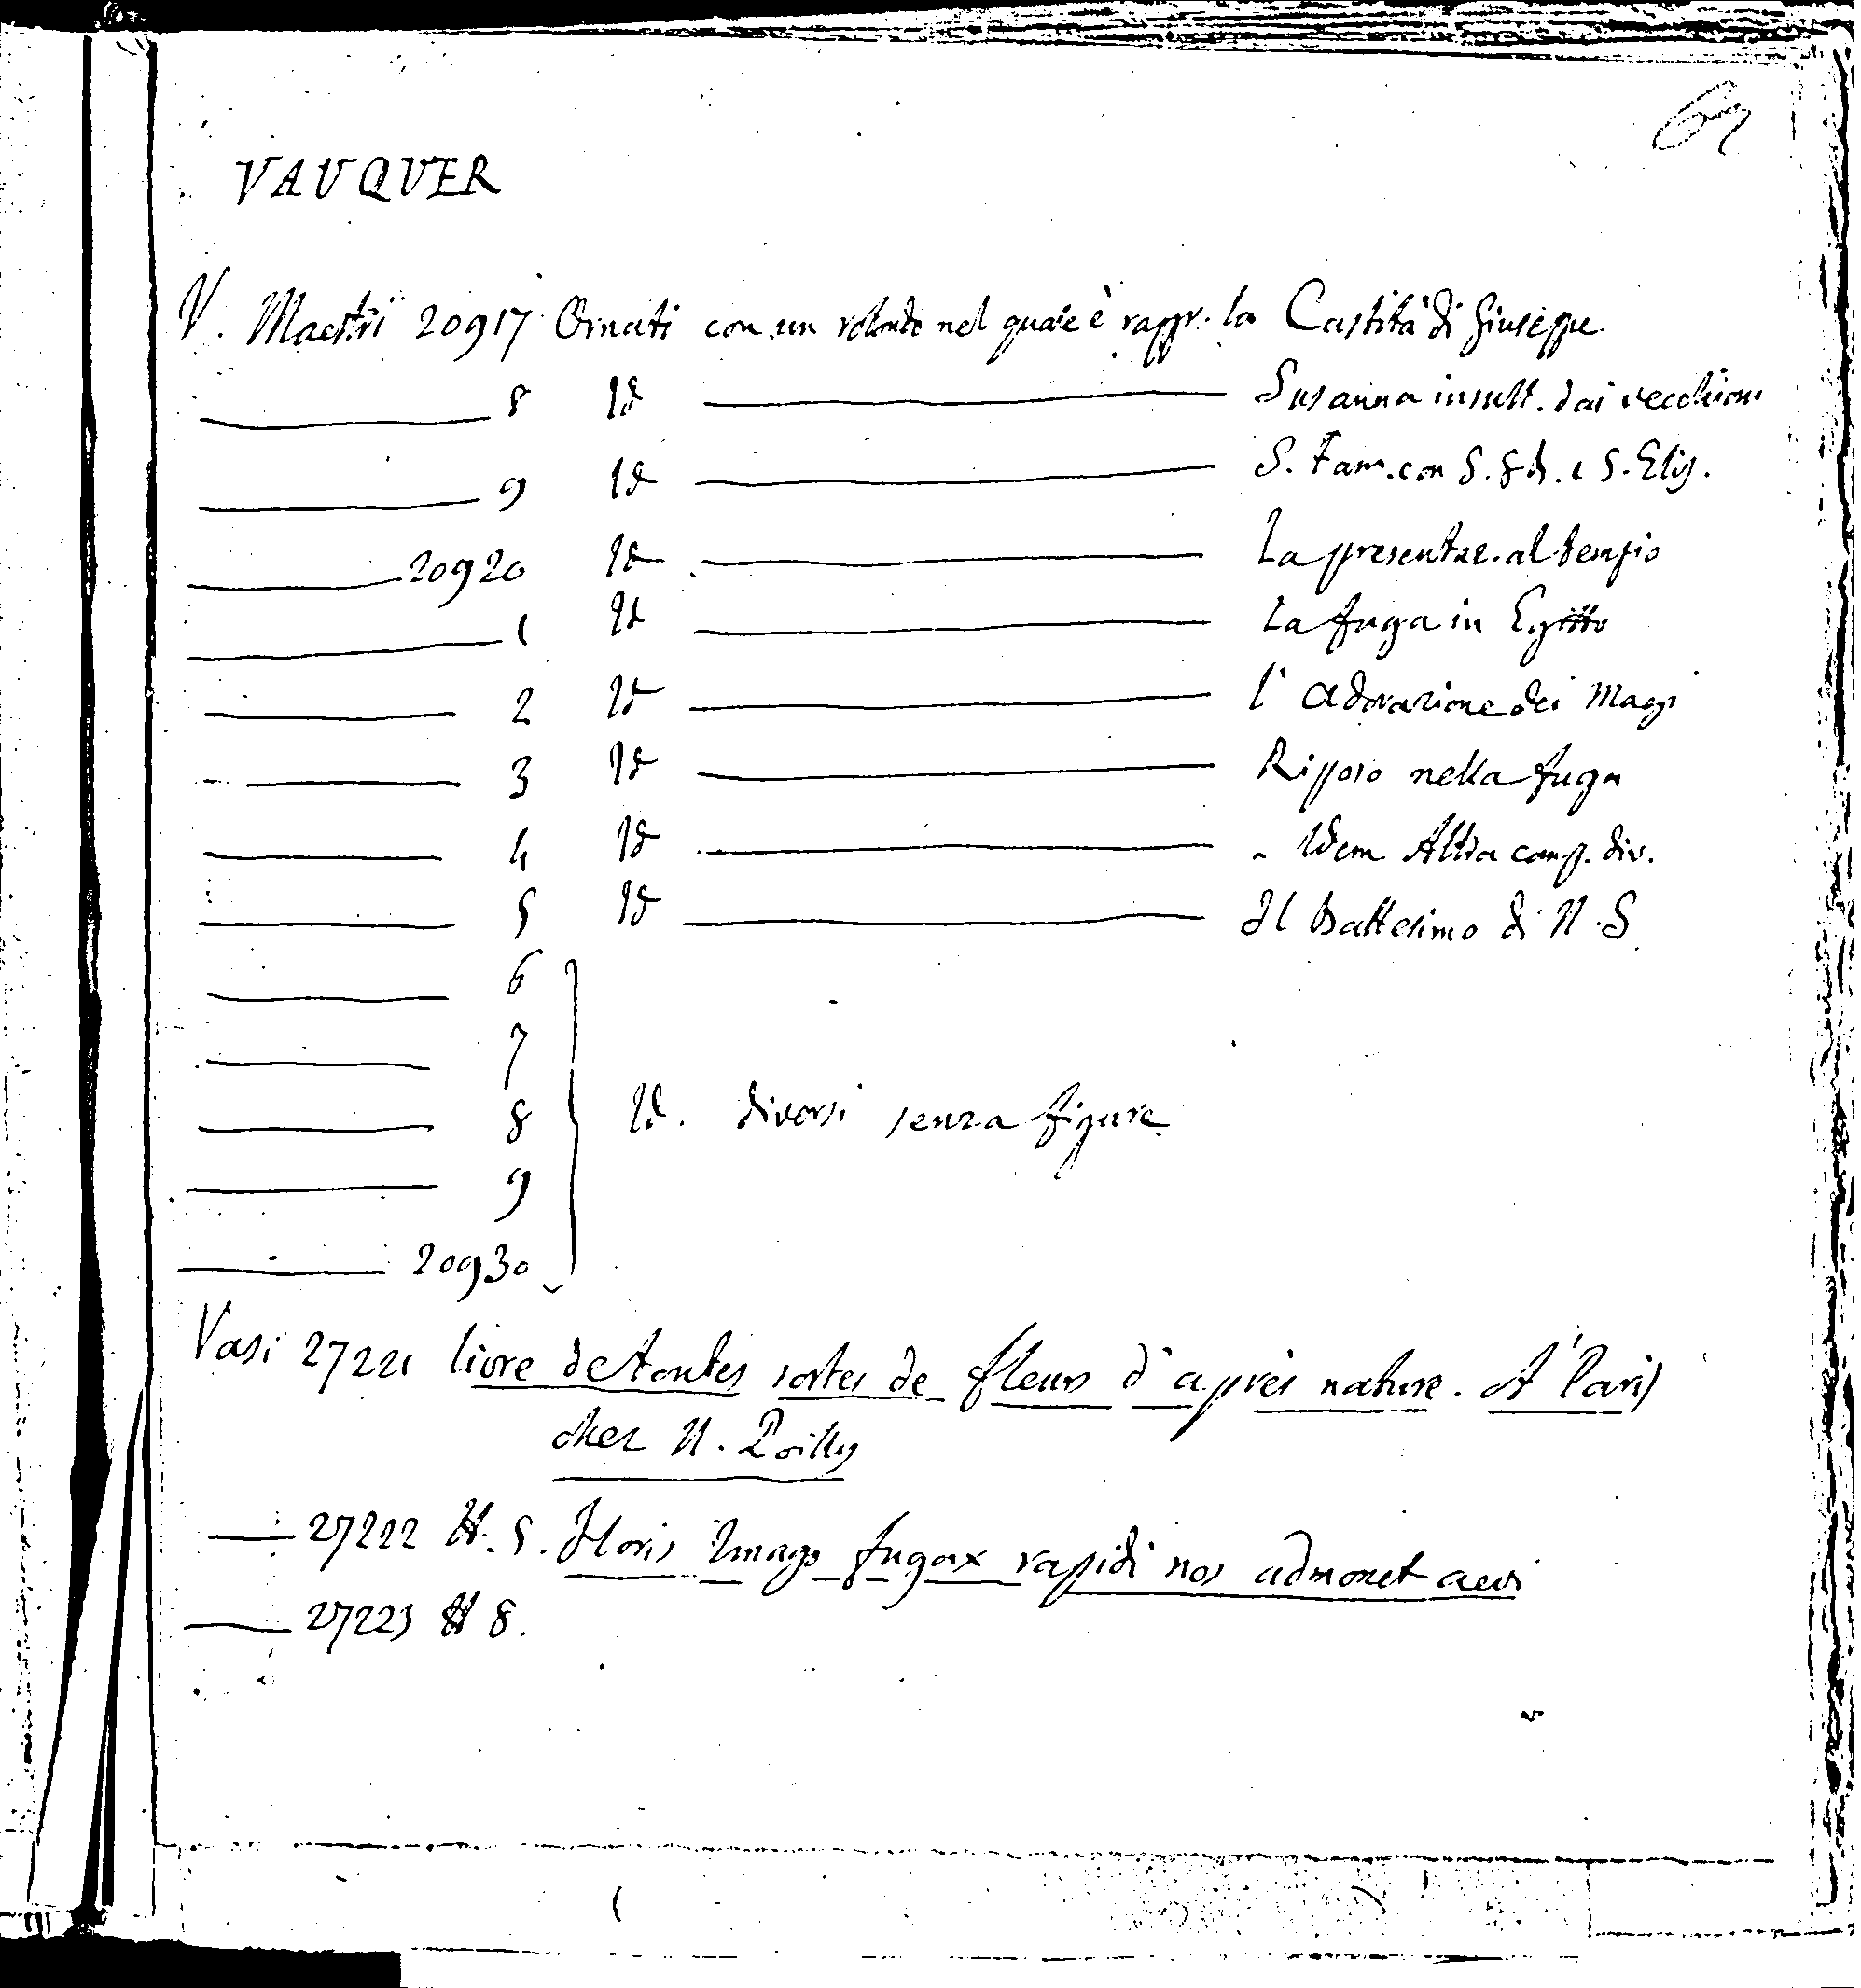 67
VAUQUER
V. Maestri 20917 Ornati con un rotondo nel quale è rappr. la Castità di Giuseppe
——— 8 Id ——— Susanna insult. dai vecchioni
——— 9 Id ——— S. Fam. con S. e S. Elis.
——— 20920 Id ——— La presentaz. al tempio
——— 1 Id ——— La fuga in Egitto
——— 2 Id ——— l'adorazione dei Magi
——— 3 Id ——— Riposo nella fuga
——— 4 Id ——— Idem Altra comp. div.
——— 5 Id ——— Il Battesimo di N.S.
——— 6
——— 7
——— 8 Id. diversi senza figure
——— 9
——— 20930
Vasi 27221 livre de toutes sortes de fleurs d'après nature. A Paris
chez N. Poilly
——— 27222 N. 5. Floris Imago fugax rapidi nos admonet aevi
——— 27223 N 8.